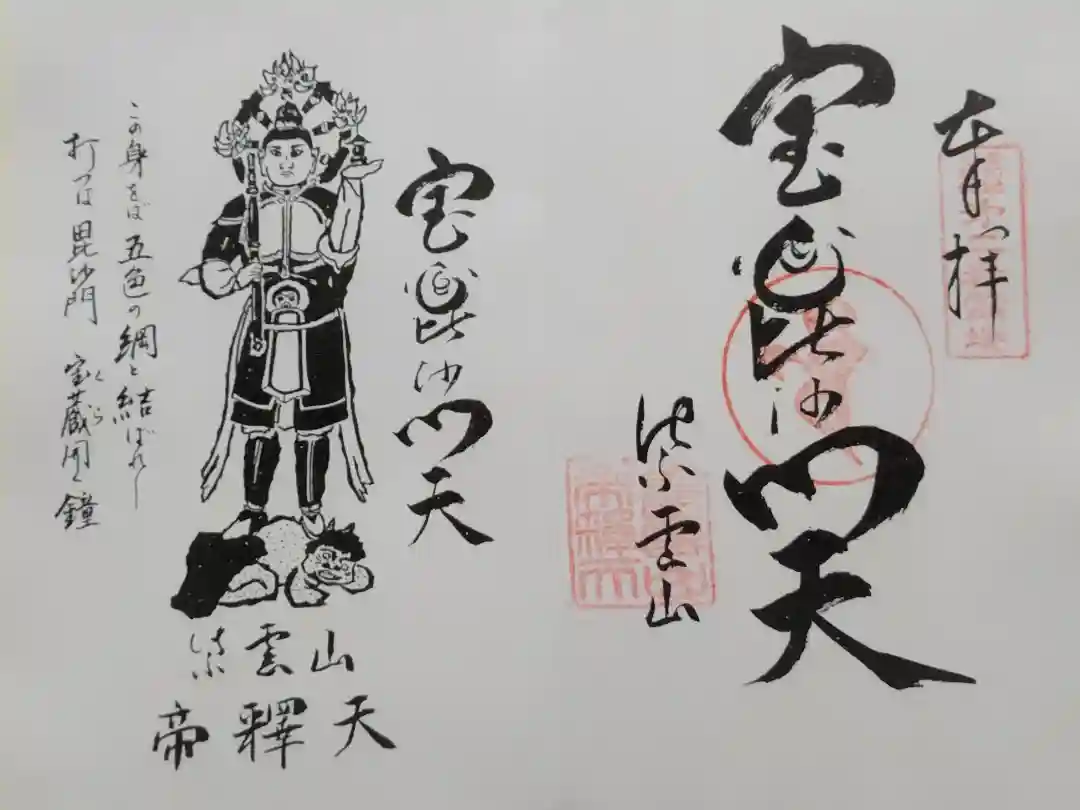 奉拝
宝毘沙門天
紫雲山
宝毘沙門天
この身をば五色の綱と結ばれし
打つは毘沙門 宝蔵開く鐘
くら
紫雲山
帝釋天